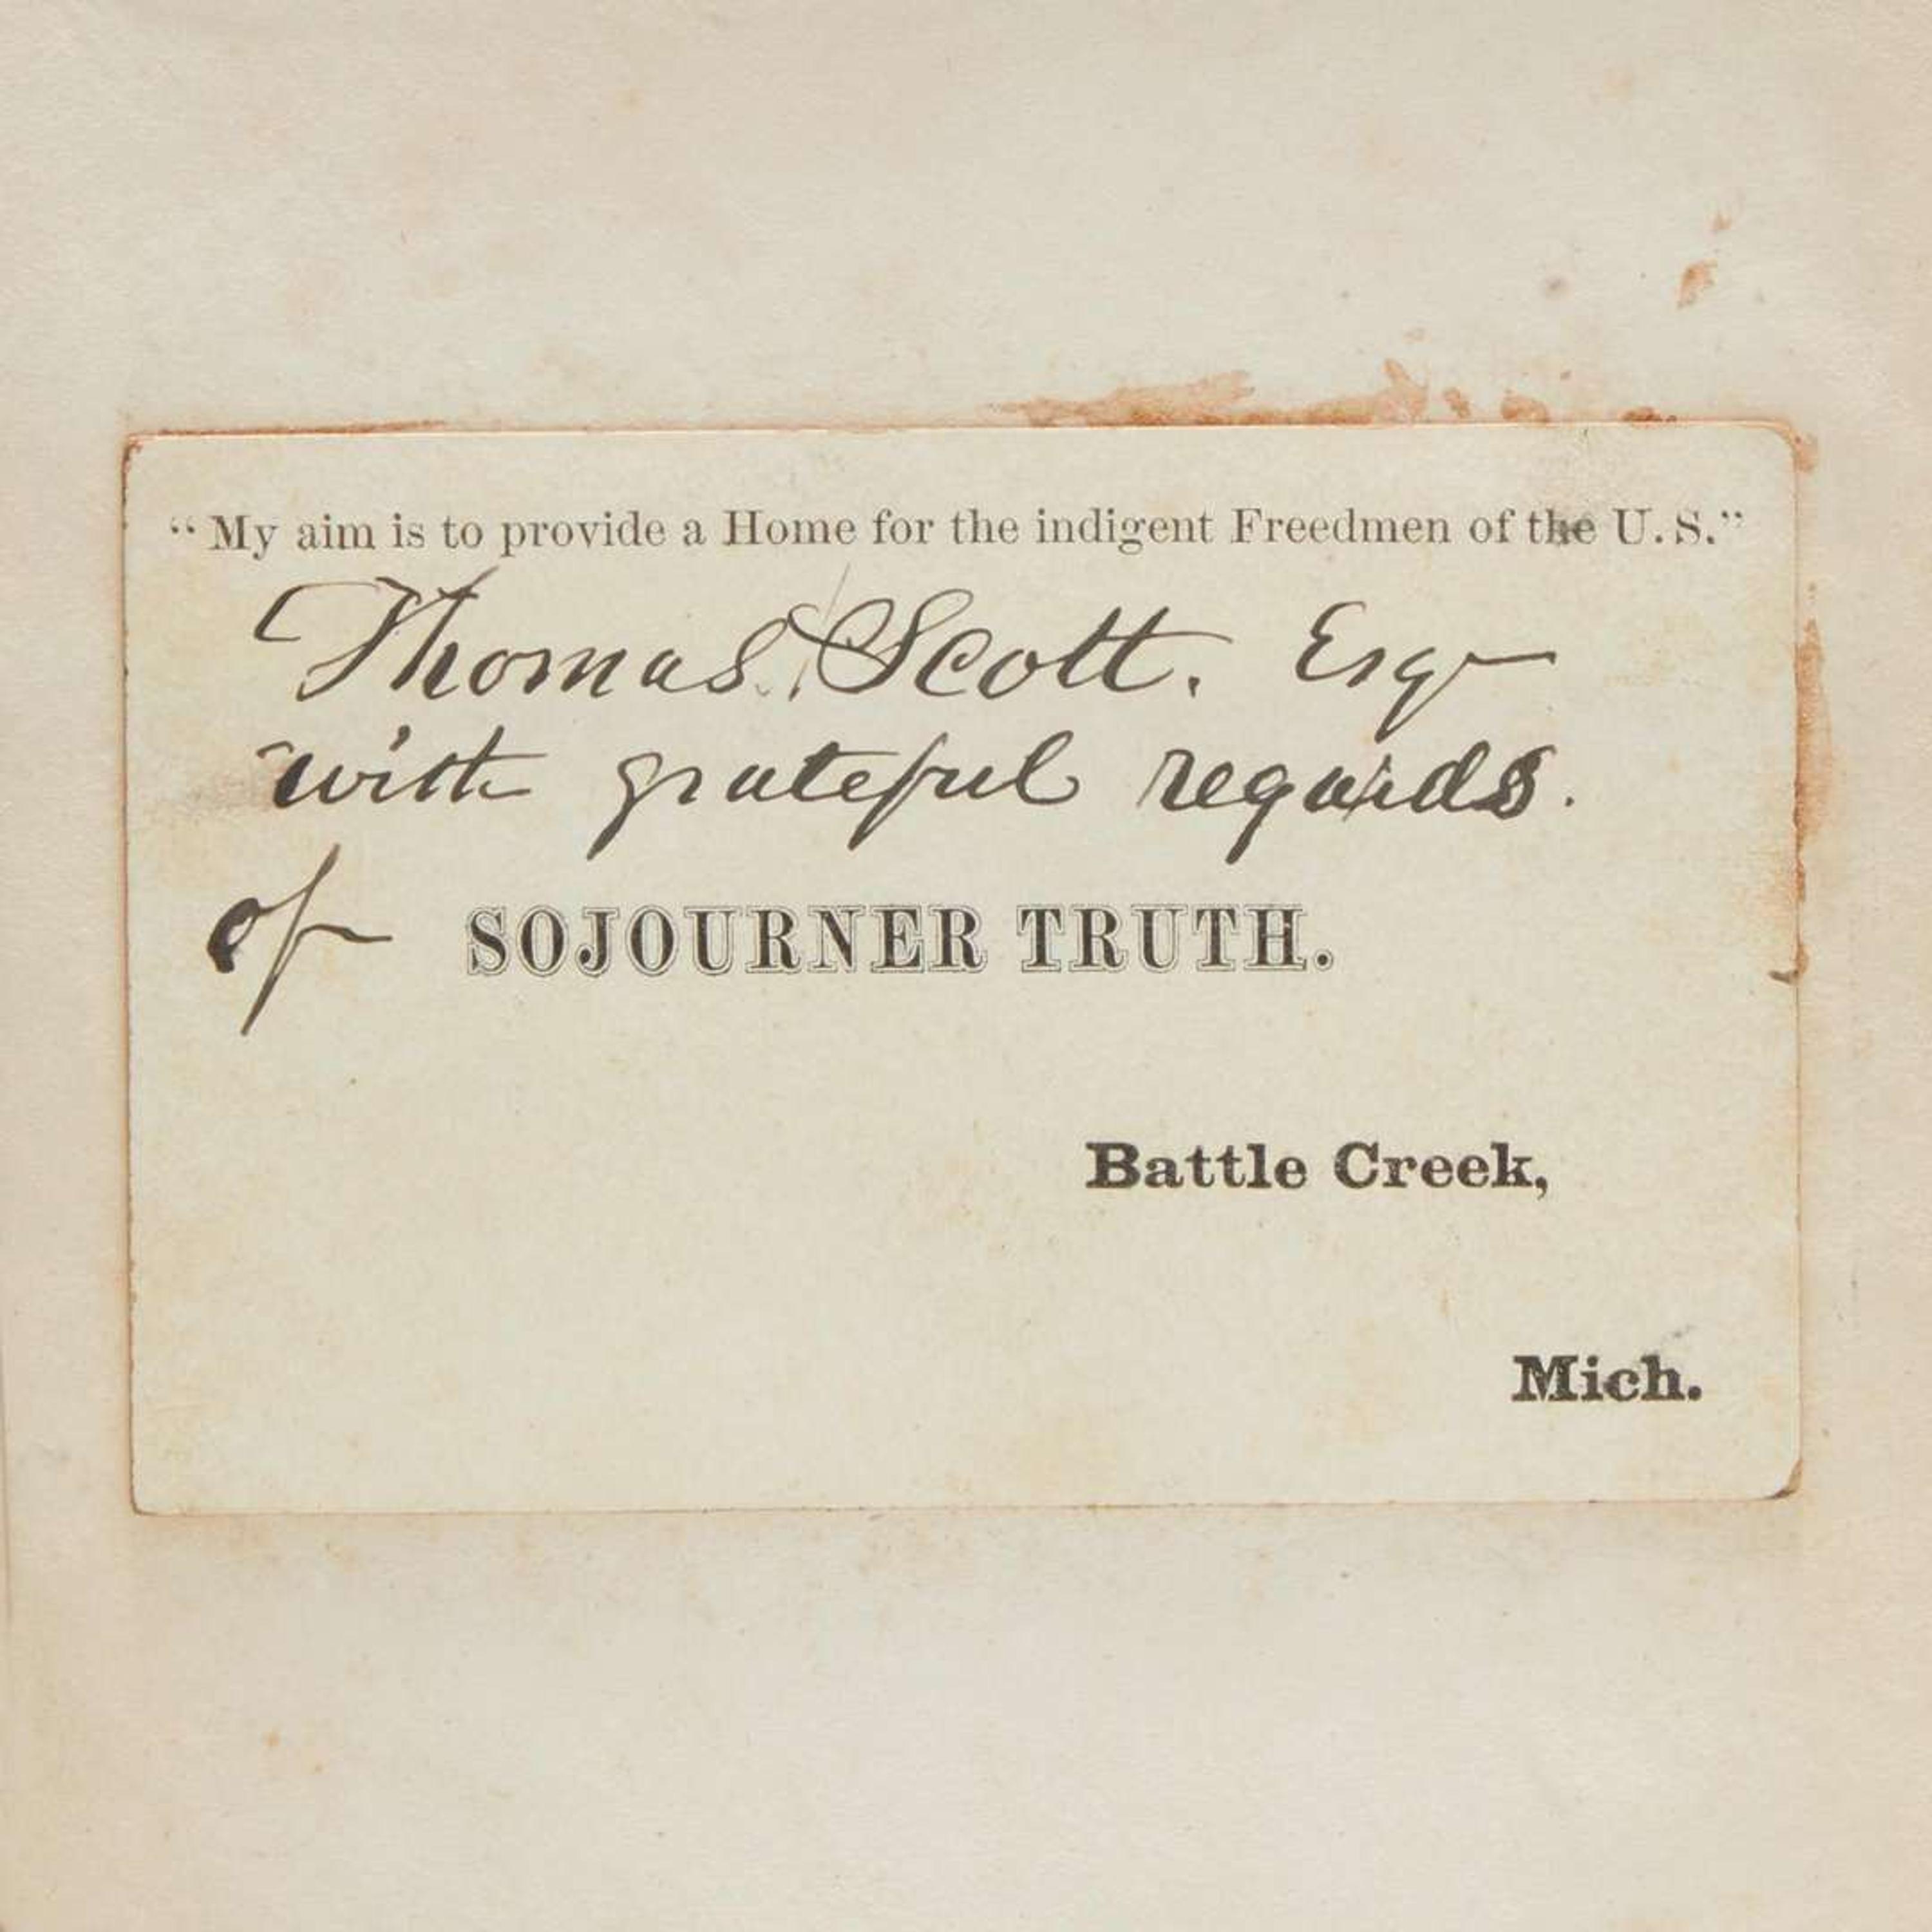 “My aim is to provide a Home for the indigent Freedmen of the U.S.”
Thomas Scott. Esq
with grateful regards.
of SOJOURNER TRUTH.
Battle Creek,
Mich.